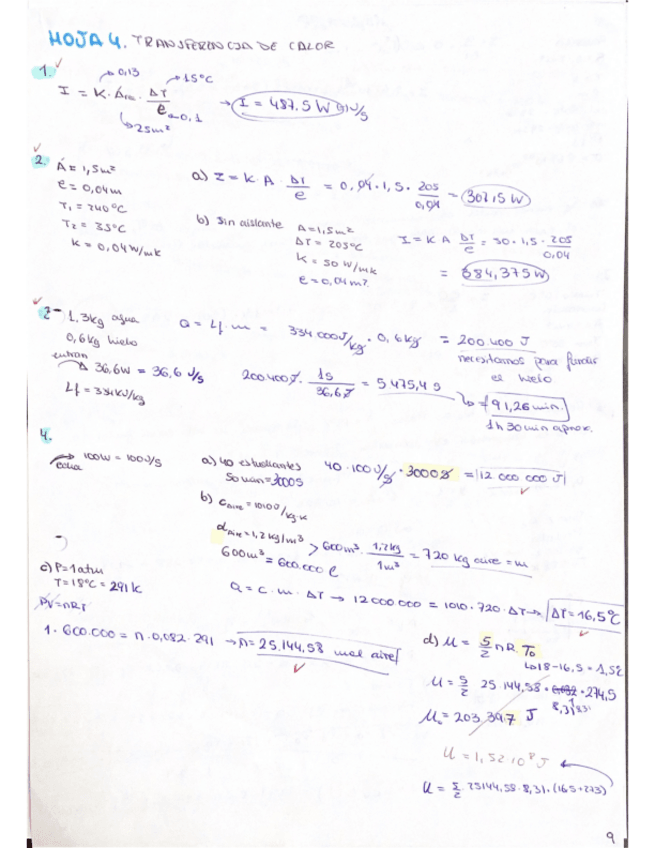 HOJA 4. TRANSFERENCIA DE CALOR
1.
0,13
15°C
I = K · A · ΔT/e
0,1
25m²
→ I = 487.5 W
2.
A = 1,5m²
e = 0,04m
T₁ = 240°C
T₂ = 35°C
K = 0,04 W/mk
a) I = K · A · ΔT/e = 0,04 · 1,5 · 205/0,04 = 307,5 W
b) Sin aislante
A = 1,5m²
ΔT = 205°C
K = 50 W/mk
e = 0,04m
I = K A ΔT/e = 50 · 1,5 · 205/0,04
= 384,375W
1,3kg agua
0,6kg hielo
entran
36,6W = 36,6 J/s
Lf = 334KJ/kg
Q = Lf · m = 334 000J/kg · 0,6kg = 200 400 J
necesitamos para fundir
el hielo
200 400J · 1s/36,6J = 5 475,4 s
91,26 min.
1h 30min aprox.
4.
100W = 100J/s
cada
a) 40 estudiantes
50min = 3000s
40 · 100J/s · 3000s = 12 000 000 J
b) c aire = 1010J/kg·k
d aire = 1,2 kg/m³
600m³ = 600.000 l
600m³ · 1,2kg/1m³ = 720 kg aire = m
Q = c · m · ΔT → 12 000 000 = 1010 · 720 · ΔT → ΔT = 16,5°C
c) P = 1atm
T = 18°C = 291k
PV = nRT
1 · 600.000 = n · 0,082 · 291 → n = 25.144,58 mol aire
d) U = 5/2 nR T₀
18-16,5 = 1,5°
U = 5/2 25 144,58 · 0,082 · 274,5
8,31
U = 203.397 J
U = 1,52·10⁸ J
U = 5/2 · 25144,58 · 8,31 · (16,5+273)
9